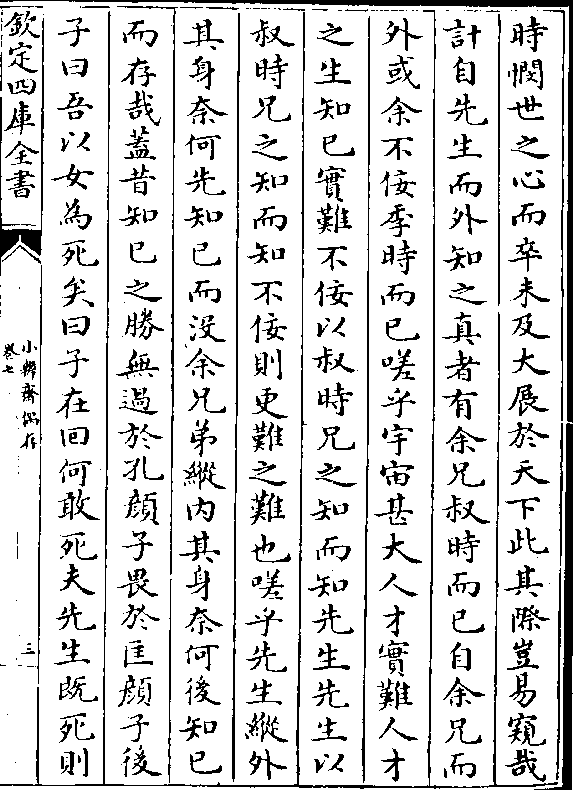 時憫世之心而卒未及大展於天下此其際豈易窺哉
計自先生而外知之真者有余兄叔時而已自余兄而
外或余不佞季時而已嗟乎宇宙甚大人才實難人才
之生知已實難不佞以叔時兄之知而知先生先生以
叔時兄之知而知不佞則更難之難也嗟乎先生縱外
其身奈何先知已而没余兄弟縱内其身奈何後知已
而存哉蓋昔知已之勝無過於孔顔子畏於匡顔子後
子曰吾以女為死矣曰子在回何敢死夫先生既死則
欽定四庫全書
小辨齋偶存
卷七
三